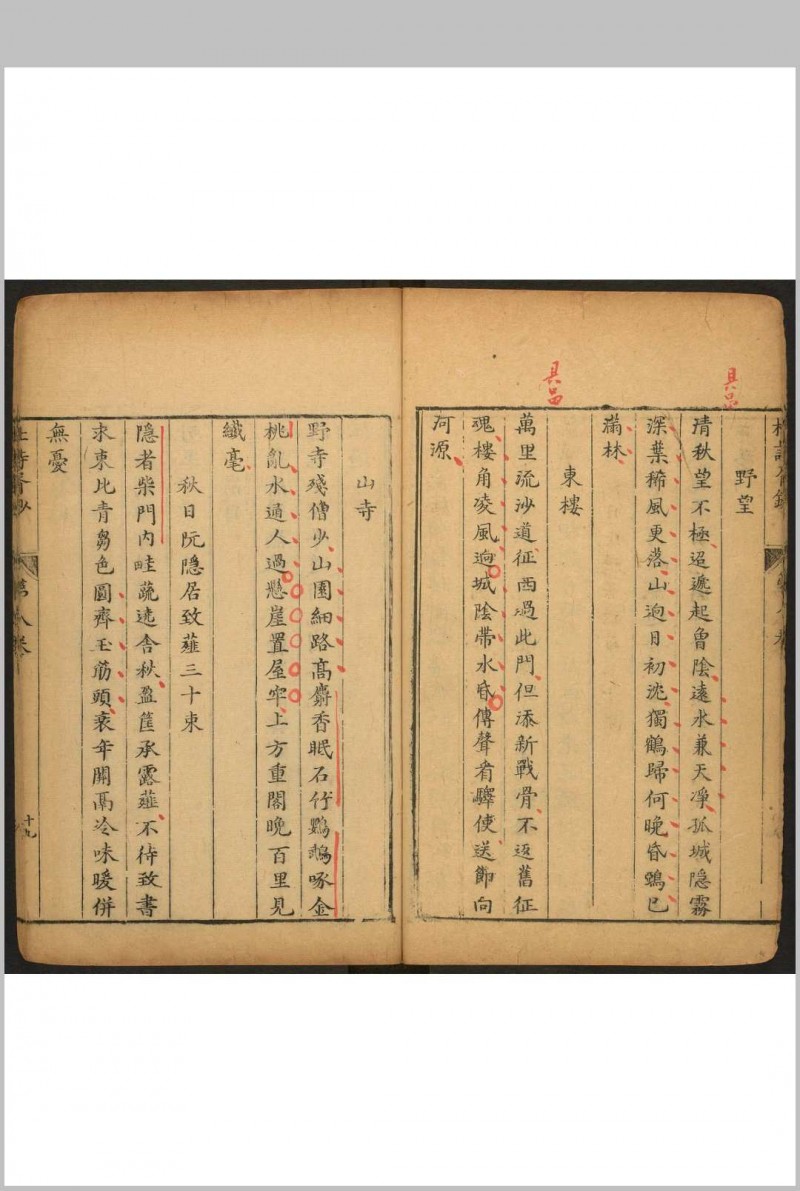 野望
清秋望不極迢遞起曾陰遠水兼天凈孤城隱霧
深葉稀風更落山迥日初沈獨鶴歸何晚昏鴉已
滿林
東樓
萬里流沙道征西過此門但添新戰骨不返舊征
魂樓角凌風迥城陰帶水昏傳聲看驛使送節向
河源
山寺
野寺殘僧少山園細路高麝香眠石竹鸚鵡啄金
桃亂水通人過懸崖置屋牢上方重閣晚百里見
纖毫
秋日阮隱居致薤三十束
隱者柴門內畦蔬遶舍秋盈筐承露薤不待致書
求束比青芻色圓齊玉筯頭衰年關鬲冷味暖併
無憂
第八卷
十九